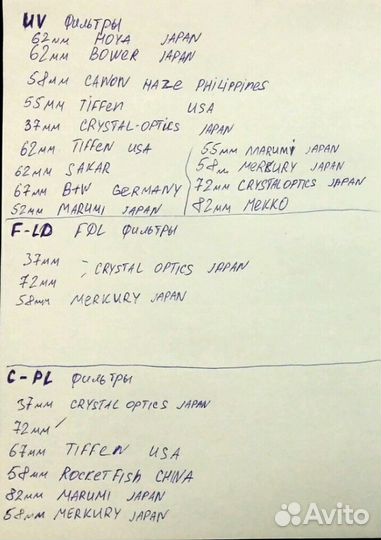 UV Фильтры
62мм HOYA JAPAN
62мм BOWER JAPAN
58мм CANON HAZE PHILIPPINES
55мм TIFFEN USA
37мм CRYSTAL-OPTICS JAPAN
62мм TIFFEN USA
62мм SAKAR
67мм B+W GERMANY
52мм MARUMI JAPAN
55мм MARUMI JAPAN
58мм MERKURY JAPAN
72мм CRYSTALOPTICS JAPAN
82мм MEKKO
F-LD FDL Фильтры
37мм
72мм CRYSTAL OPTICS JAPAN
58мм MERKURY JAPAN
C-PL Фильтры
37мм CRYSTAL OPTICS JAPAN
72мм
67мм TIFFEN USA
58мм ROCKETFISH CHINA
82мм MARUMI JAPAN
58мм MERKURY JAPAN
Avito